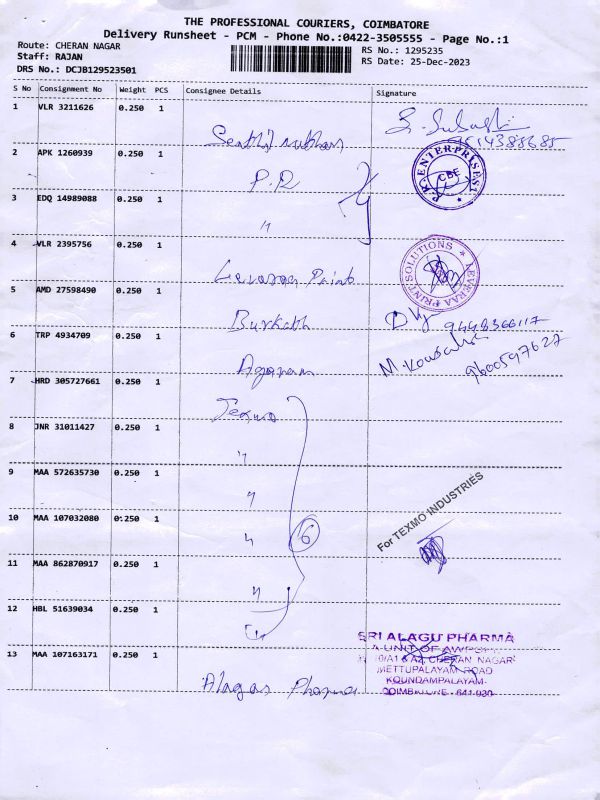 THE PROFESSIONAL COURIERS, COIMBATORE
Delivery Runsheet - PCM - Phone No.:0422-3505555 - Page No.:1
Route: CHERAN NAGAR
RS No.: 1295235
Staff: RAJAN
RS Date: 25-Dec-2023
DRS No.: DCJB129523501
S No Consignment No Weight PCS Consignee Details Signature
1 VLR 3211626 0.250 1
2 APK 1260939 0.250 1
P.K ENTERPRISES CBE
P.R
3 EDQ 14989088 0.250 1
"
4 VLR 2395756 0.250 1
LEVERAA PRINT SOLUTIONS
Print
5 AMD 27598490 0.250 1
9448366117
6 TRP 4934709 0.250 1
9600597627
7 HRD 305727661 0.250 1
Texmo
8 JNR 31011427 0.250 1
"
9 MAA 572635730 0.250 1
"
For TEXMO INDUSTRIES
10 MAA 107032080 0.250 1
"
6
11 MAA 862870917 0.250 1
"
12 HBL 51639034 0.250 1
SRI ALAGU PHARMA
A UNIT OF
CHERAN NAGAR
13 MAA 107163171 0.250 1
METTUPALAYAM ROAD
KOUNDAMPALAYAM
COIMBATORE - 641 030
Pharma